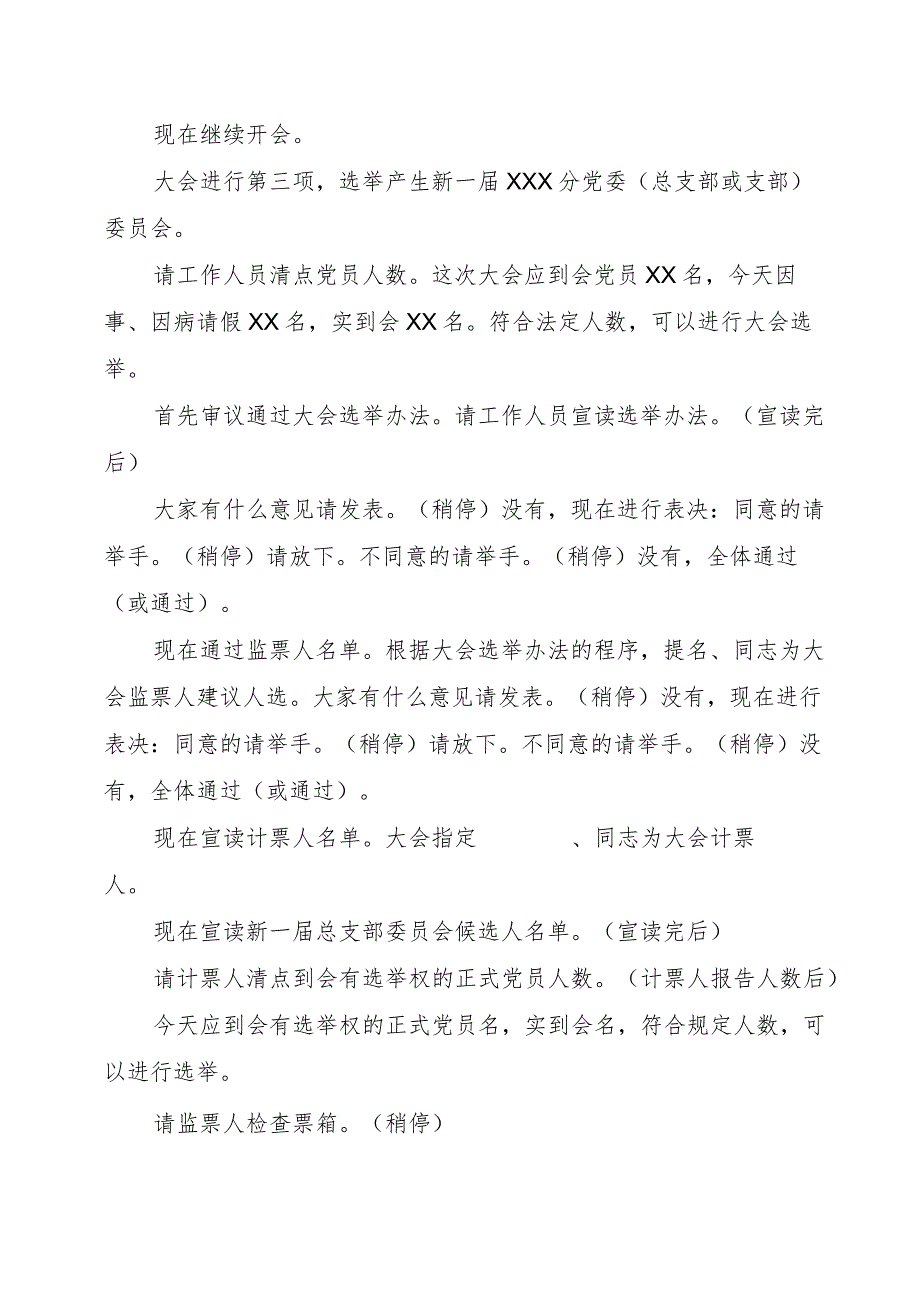 现在继续开会。
大会进行第三项，选举产生新一届 XXX 分党委（总支部或支部）
委员会。
请工作人员清点党员人数。这次大会应到会党员 XX 名，今天因
事、因病请假 XX 名，实到会 XX 名。符合法定人数，可以进行大会选
举。
首先审议通过大会选举办法。请工作人员宣读选举办法。（宣读完
后）
大家有什么意见请发表。（稍停）没有，现在进行表决：同意的请
举手。（稍停）请放下。不同意的请举手。（稍停）没有，全体通过
（或通过）。
现在通过监票人名单。根据大会选举办法的程序，提名、同志为大
会监票人建议人选。大家有什么意见请发表。（稍停）没有，现在进行
表决：同意的请举手。（稍停）请放下。不同意的请举手。（稍停）没
有，全体通过（或通过）。
现在宣读计票人名单。大会指定　　　　、同志为大会计票
人。
现在宣读新一届总支部委员会候选人名单。（宣读完后）
请计票人清点到会有选举权的正式党员人数。（计票人报告人数后）
今天应到会有选举权的正式党员名，实到会名，符合规定人数，可
以进行选举。
请监票人检查票箱。（稍停）